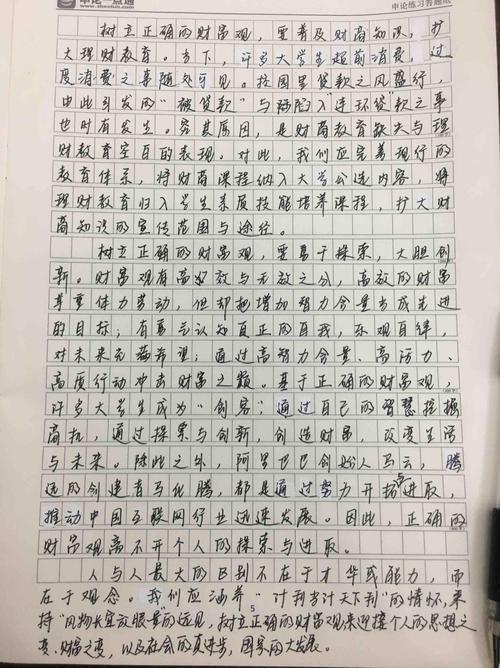 申论一点通
申论练习答题纸
树立正确的财富观，需普及财商知识，扩
大理财教育。当下，许多大学生超前消费，过
度消费之事随处可见。校园里贷款之风盛行，
由此引发的“被贷款”与陷入“连环贷”款之事
也时有发生。究其原因，是财商教育缺失与理
财教育空白的表现。对此，我们应完善现行的
教育体系，将财商课程纳入大学公选内容，将
理财教育归入学生素质技能培养课程，扩大财
商知识的宣传范围与途径。
树立正确的财富观，需勇于探索，大胆创
新。财富观有高效与无效之分，高效的财富
尊享体力劳动，但却把增加智力含量当成先进
的目标；有勇气认知真正的自我，乐观自律，
对未来充满希望；通过高智力含量、高活力、
高度行动冲击财富之巅。基于正确的财富观，
许多大学生成为“创客”；通过自己的智慧挖掘
商机，通过探索与创新，创造财富，改变生活
与未来。除此之外，阿里巴巴创始人马云，腾
迅的创建者马化腾，都是通过努力开拓与进取，
推动中国互联网行业迅速发展。因此，正确的
财富观离不开个人的探索与进取。
人与人最大的区别不在于才华或能力，而
在于观念。我们应涵养“计利当计天下利”的情怀，秉
持“风物长宜放眼量”的远见，树立正确的财富观来迎接个人的思想之
变、财富之变，以及社会的真进步，国家的大发展。
5